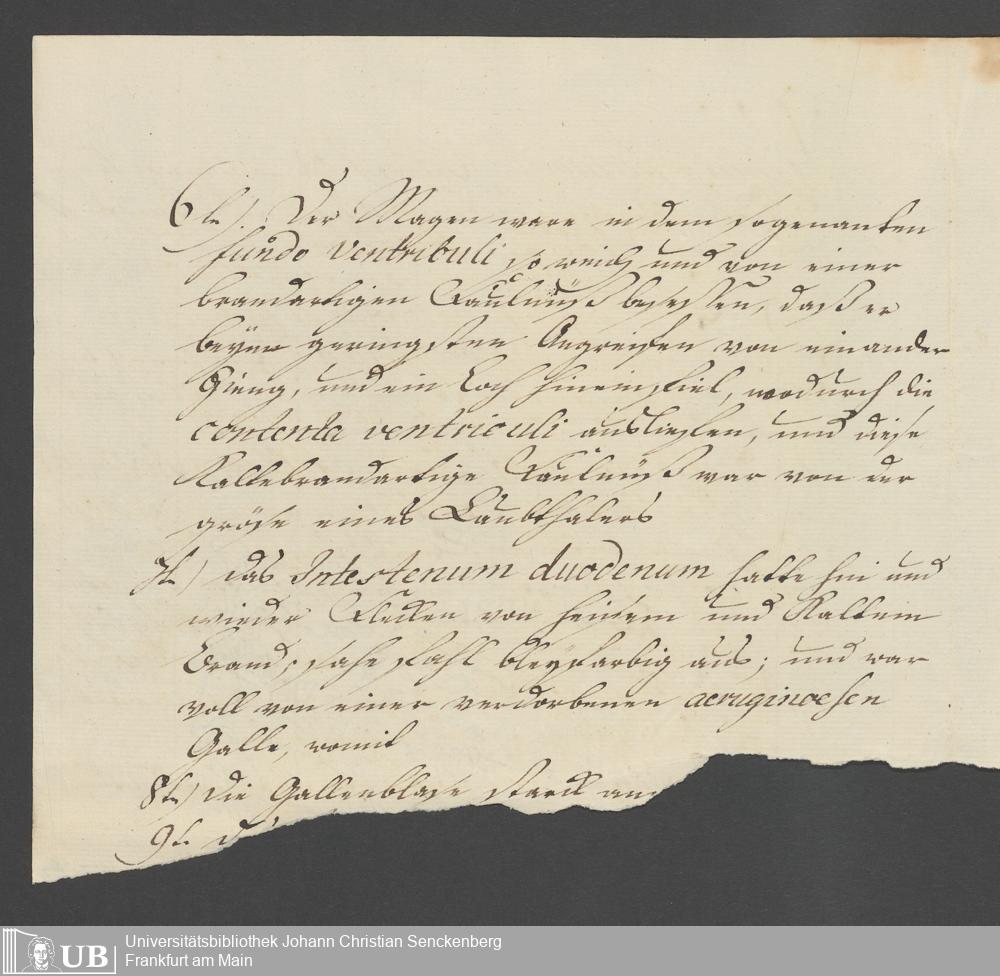 6te). Der Magen ware in dem sogenanten
fundo Ventribuli so weich und von einer
brandartigen Fäulnüß besessen, daß er
beym geringsten Angreifen von einander
gieng, und ein Loch hineinfiel, wodurch die
contenta ventriculi ausliessen, und diese
Kaltebrandartige Fäulnüß war von der
gröse eines Laubthalers
7te) das Intestenum duodenum hatte hin und
wieder Flecken von heisem und Kaltem
Brand; sahe stahl bleyfarbig aus; und war
voll von einer verdorbenen aeruginoesen
Galle, womit
8te) die Gallenblase starck
9te
UB
Universitätsbibliothek Johann Christian Senckenberg
Frankfurt am Main